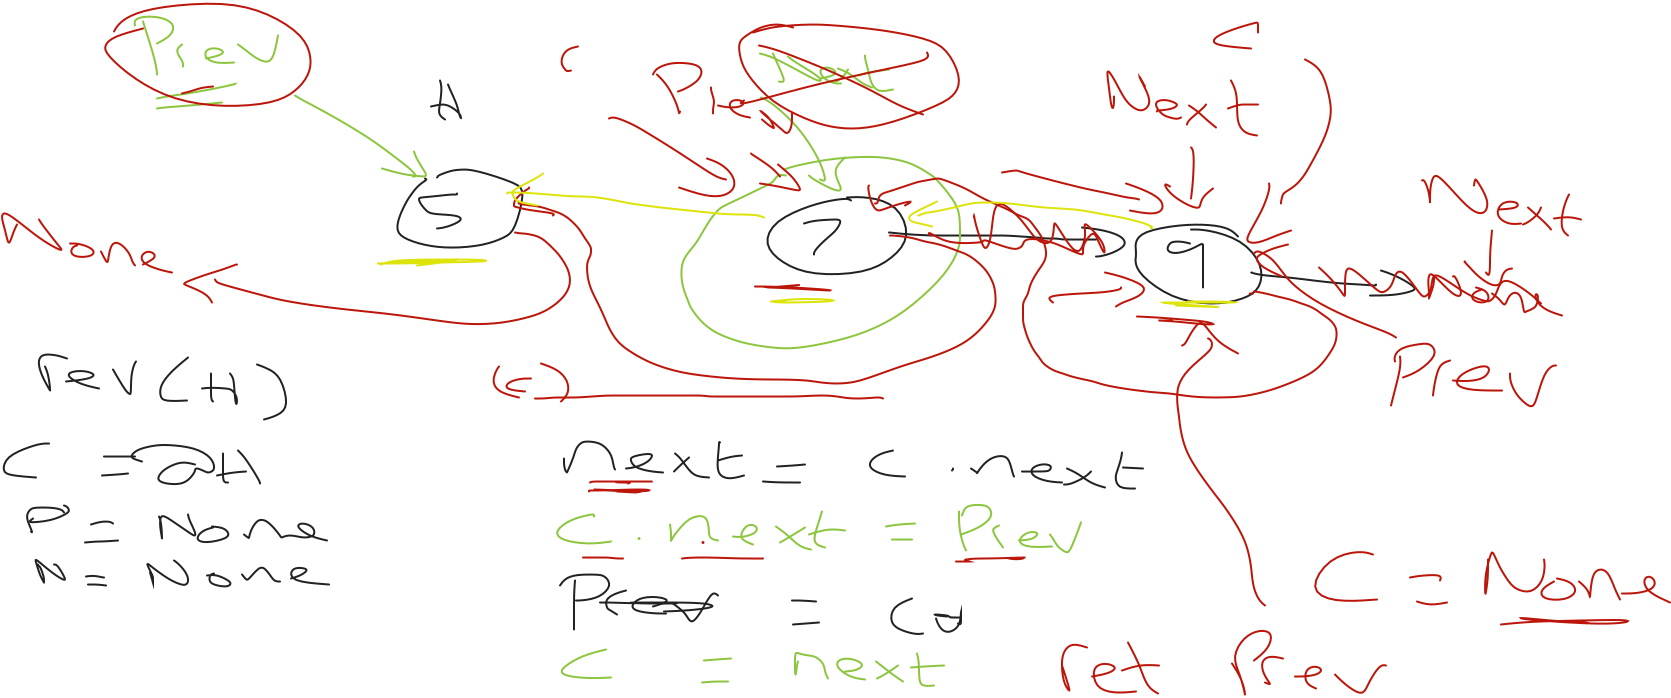 Prev
H
C
Prev
Next
Next
C
Next
None
5
7
9
None
Prev
rev(H)
(c)
C = H
P = None
N = None
next = c.next
c.next = Prev
Prev = cu
C = next
C = None
ret Prev